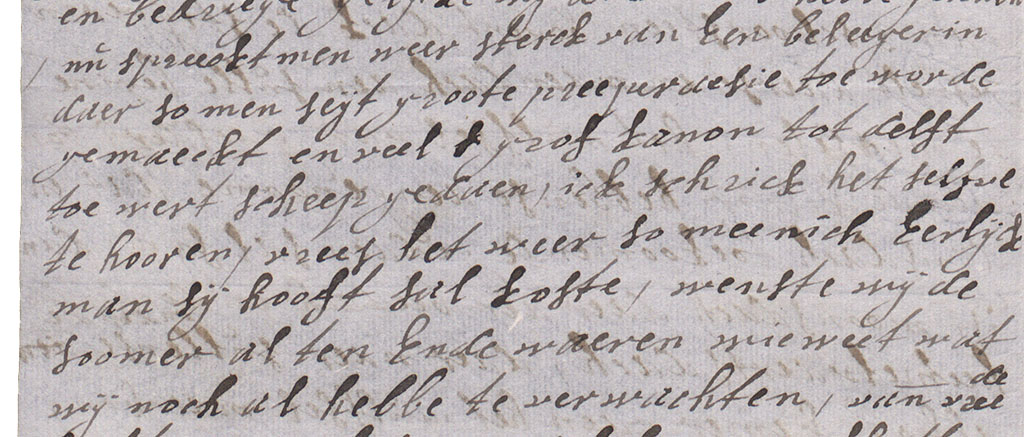 en bedriege
/ nu spreeckt men weer sterck van Een beleegerin
daer so men seijt groote preeperaesie toe worde
gemaeckt en veel grof kanon tot delft
toe wert scheep gedaen, ick schrick het selfve
te hooren, vrees het weer so meenich Eerlijck
man sij hooft sal koste, wenste wij de
soomer al ten Ende waeren wie weet wat
wij noch al hebbe te verwachten, van vree
de